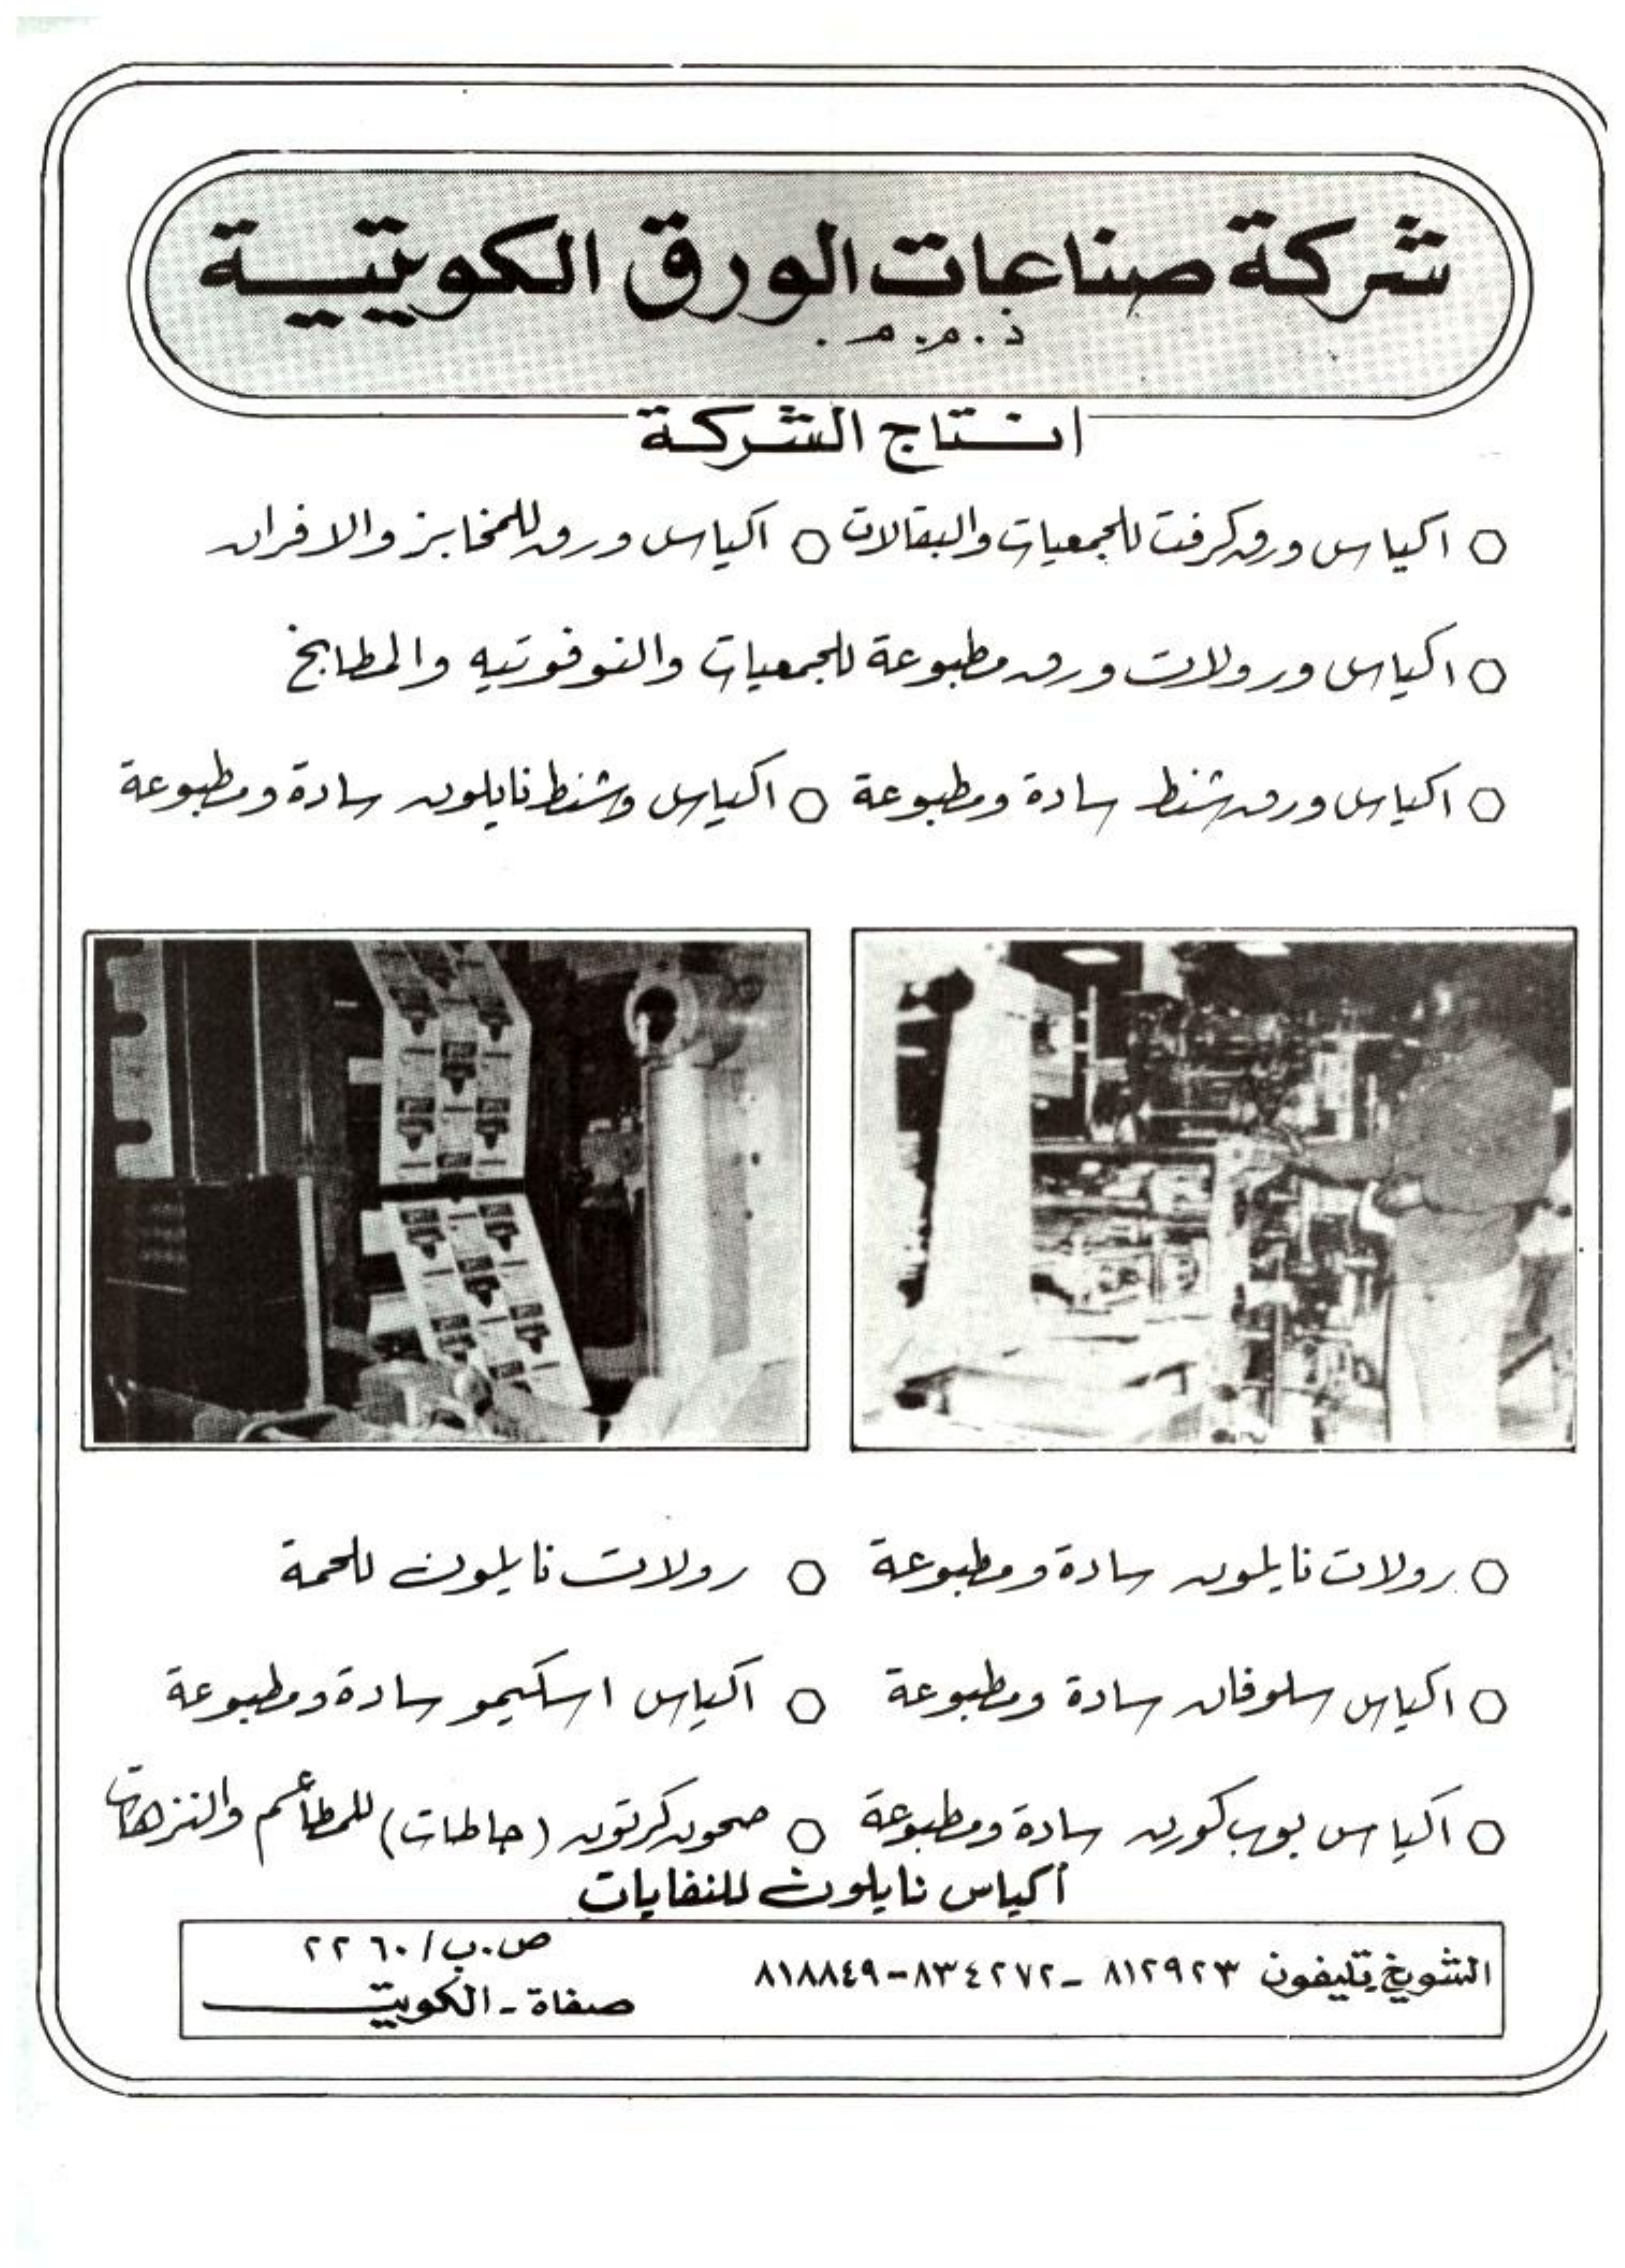 شركة صناعات الورق الكويتية
ذ.م.م.
انتاج الشركة
اكياس ورق كرفت للجمعيات والبقالات اكياس ورق للمخابز والافران
اكياس ورولات ورق مطبوعة للجمعيات والنوفوتيه والمطابخ
اكياس ورق شنط سادة ومطبوعة اكياس وشنط نايلون سادة ومطبوعة
رولات نايلون سادة ومطبوعة رولات نايلون للحمة
اكياس سلوفان سادة ومطبوعة اكياس اسكيمو سادة ومطبوعة
اكياس بوب كورن سادة ومطبوعة صحون كرتون (جاطات) للمطاعم والنزهات
أكياس نايلون للنفايات
الشويخ تليفون ٨١٢٩٢٣ - ٨٣٤٢٧٢ - ٨١٨٨٤٩
ص.ب/ ٢٢٦٠
صفاة - الكويت